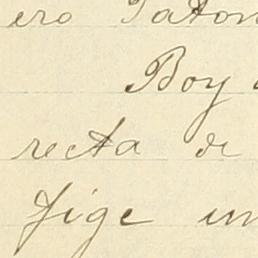 ero Paton
Boy
recta de
fige un